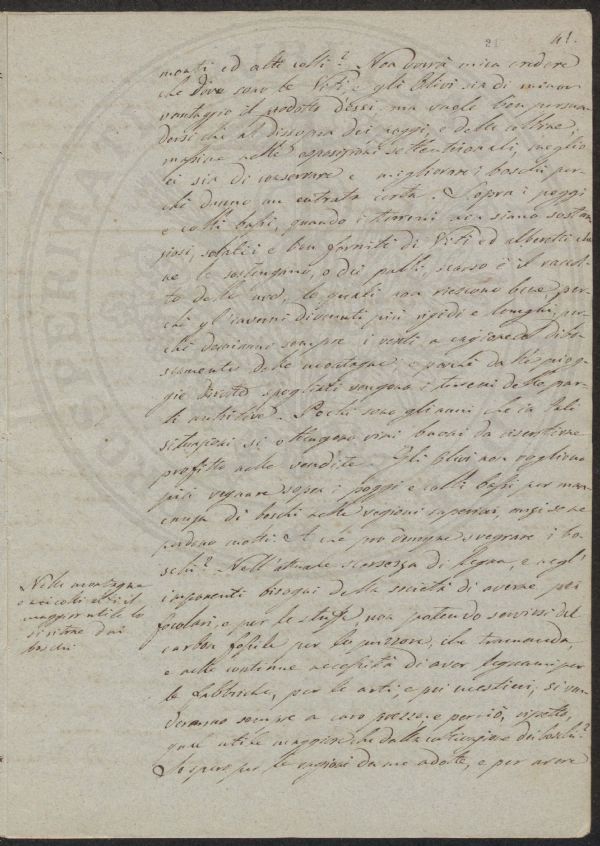 21
41.
monti ed alti colli? Non dovrà mica credere
che dove sono le Viti, e gli Ulivi sia di minor
vantaggio il prodotto d'essi ma vuole ben persua
dersi che al dissopra dei poggi, e delle colline,
massime nelle esposizioni settentrionali, meglio
ci sia di conservare e migliorare i boschi per
chè danno un entrata certa. Sopra i poggi
e colli bassi, quando i terreni non siano sostan
ziosi, solatii e ben forniti di Viti ed alberetti che
ne le sostengano, o dei palli, scarso è il raccol
to delle uve, le quali non riescono bene per
chè gl'inverni divenuti più rigidi e lunghi, per
chè dominano sempre i venti a cagione del disbo
scamento delle montagne e perchè da
spogliati vengono i terreni delle par
ti nutritive. Pochi sono gli anni che in tali
situazioni si ottengono vini buoni da risentirne
profitto nelle vendite. Gli Ulivi non vogliono
più vegnare sopra i poggi e colli bassi per man
canza di boschi nelle regioni superiori, anzi se ne
perdono molti. A che pro dunque svegrare i bo
schi? Nell'attuale scarsezza di legna, e negl'
imponenti bisogni della società di averne pei
focolari, e per le stuffe, non potendo servirsi del
carbon fossile per la puzzore, che tramanda,
e nelle continue necessità di aver legnami per
le fabbriche, per le arti, e pei mestieri, si ven
deranno sempre a caro prezzo, e perciò, rispetto,
qual utile maggiore che dalla coltivazione dei boschi?
Io spero per le ragioni da me adotte, e per avere
Nelle montagne
e nei colli alti il
maggior utile lo
si ritrae dai
boschi